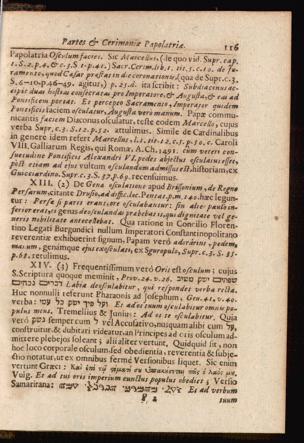 Partes & Cerimoniæ Papolatriæ. 116
Papolatria Osculum facere. Sic Marcellus, (de quo vid. Supr. cap.
1. S. 2. p. 4. & c. 3. S. 1. p. 41.) Sacr. Cerim. lib. 1. tit. 5. c. 10. de
juramento, quod Cæsar præstat in die coronationis, (qua de Supr. c. 3.
S. 6. n. 10. p. 46-49. agitur,) p. 23. d. ita scribit: Subdiaconus accipit
duas hostias consecratas pro Imperatore, & Augusta, & eas ad
Pontificem portat. Et percepto Sacramento, Imperator quidem
Pontificis faciem osculatur, Augusta vero manum. Papæ communicantis
faciem Diaconus osculatur, teste eodem Marcello, cujus
verba Supr. c. 8. S. 12. p. 52. attulimus. Simile de Cardinalibus
in genere idem refert Marcellus, l. 1. tit. 12. c. 5. p. 50. c. Caroli
VIII, Galliarum Regis, qui Romæ A. Ch. 1495. cum veteri consuetudine
Pontificis Alexandri VI. pedes abjectus osculatus esset,
post etiam ad ejus vultum osculandum admissus est, historiam, ex
Guicciardino, Supr. c. 3. S. 37. p. 69. recensuimus.
XIII. (2) De Gena osculatione apud Brissonium, de Regno
Persarum, citante Drusio, ad diffic. loc. Pentat. p. m. 140. hæc leguntur:
Persæ si pares erant, ore osculabantur: sin alter paulo inferior
erat; is genas deosculandas præbebat is, qui dignitate vel generis
nobilitate antecellebat. Qua ratione in Concilio Florentino
Legati Burgundici nullum Imperatori Constantinopolitano
reverentiæ exhibuerint signum, Papam vero adorârint, pedem,
manum, genámque ejus exosculati, ex Sguropulo, Supr. c. 3. S. 31.
p. 68. retulimus.
XIV. (3) Frequentissimum verò Oris est osculum; cujus
S. Scriptura quoque meminit, Prov. 24. v. 26. שפתים ישק משיב
דברים נכחים Labia deosculabitur, qui respondet verba recta.
Huc nonnulli referunt Pharaonis ad Josephum, Gen. 41. v. 40.
verba: ועל פיך ישק כל עמי Et ad os tuum osculabitur omnis populus
meus. Tremellius & Junius: Ad os te osculabitur. Quia
verò נשק semper cum ל vel Accusativo, nusquam alibi cum על,
construitur, & dubitari videatur, an Principes ad oris osculum admittere
plebejos soleant; alii aliter vertunt. Quidquid sit, non
hoc loco corporale osculum, sed obedientia, reverentia & subjectio
notatur, ut ex omnibus fermè Versionibus liquet. Sic enim
vertunt Græci: Καὶ ἐπὶ τῷ στόματί σου ὑπακούσεται πᾶς ὁ λαός μου,
Vulg. Et ad tui oris imperium cunctus populus obediet; Versio
Samaritana: Et ad verbum
P 2 tuum